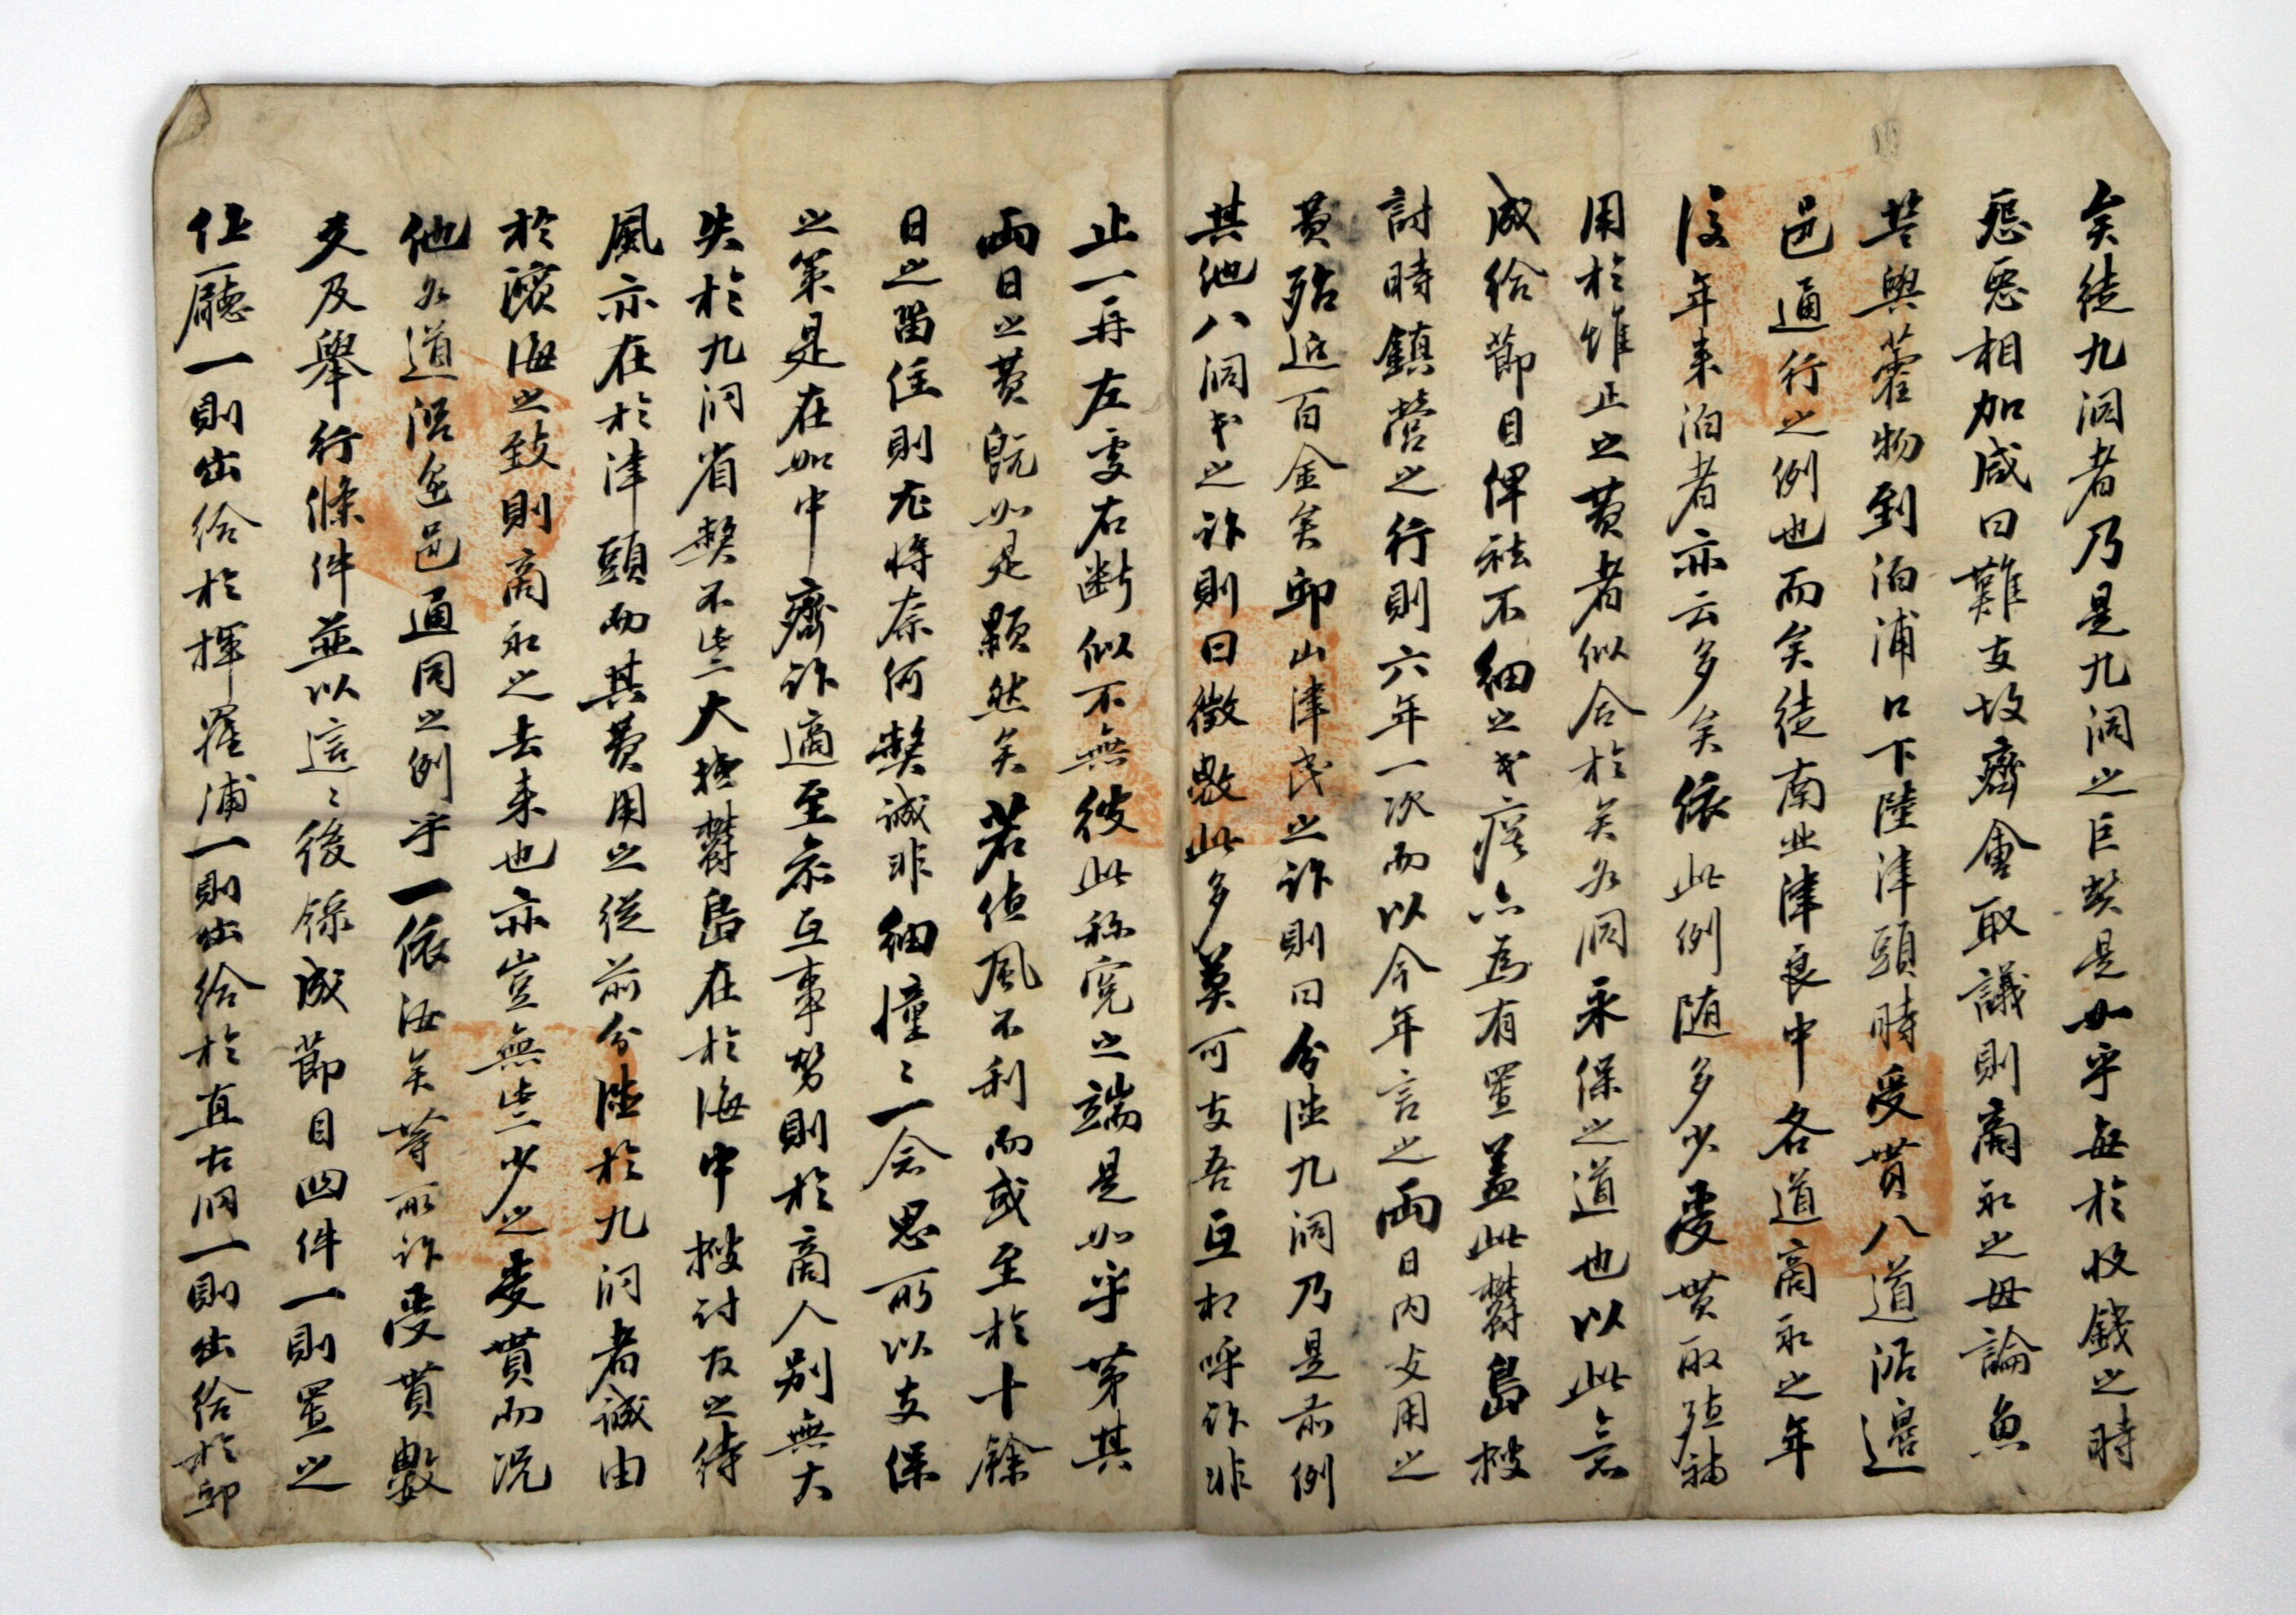 矣徒九洞者乃是九洞之巨弊是如乎每於收錢之時
怨惡相加咸曰難支故齊會取議則商船之毋論魚
藿與藿物到泊浦口下陸津頭時受貰八道沿邊
邑通行之例也而矣徒南北津良中各道商船之年
後年來泊者亦云多矣依此例隨多少受貰取殖補
用於雉正之費者似合於矣各洞采保之道也以此意
成給節目俾祛不細之弊瘼亦爲有置蓋此欝島搜
討時鎭營之行則六年一次而以今年言之兩日內支用之
費殆近百金矣邱山津民之訴則曰分陸九洞乃是前例
其他八洞民之訴則曰徵斂此多莫可支吾互相呼訴非
止一再左雯右斷似不無彼此称寃之端是如乎第其
兩日之費旣如是顆然矣若値風不利而或至於十餘
日之留住則尤將奈何弊誠非細憧〻一念思所以支保
之策是在如中齊訴適至參互事勢則於商人別無大
失於九洞省弊不些大抵欝島在於海中搜討左之待
風亦在於津頭而其費用之從前分陸於九洞者誠由
於濱海之致則商船之去來也亦豈無些少之受貰而况
他各道沿邊邑通同之例乎一依汝矣等所訴受貰數
爻及擧行條件並以這〻後錄成節目四件一則置之
任廳一則出給於揮羅浦一則出給於直古洞一則出給於邱